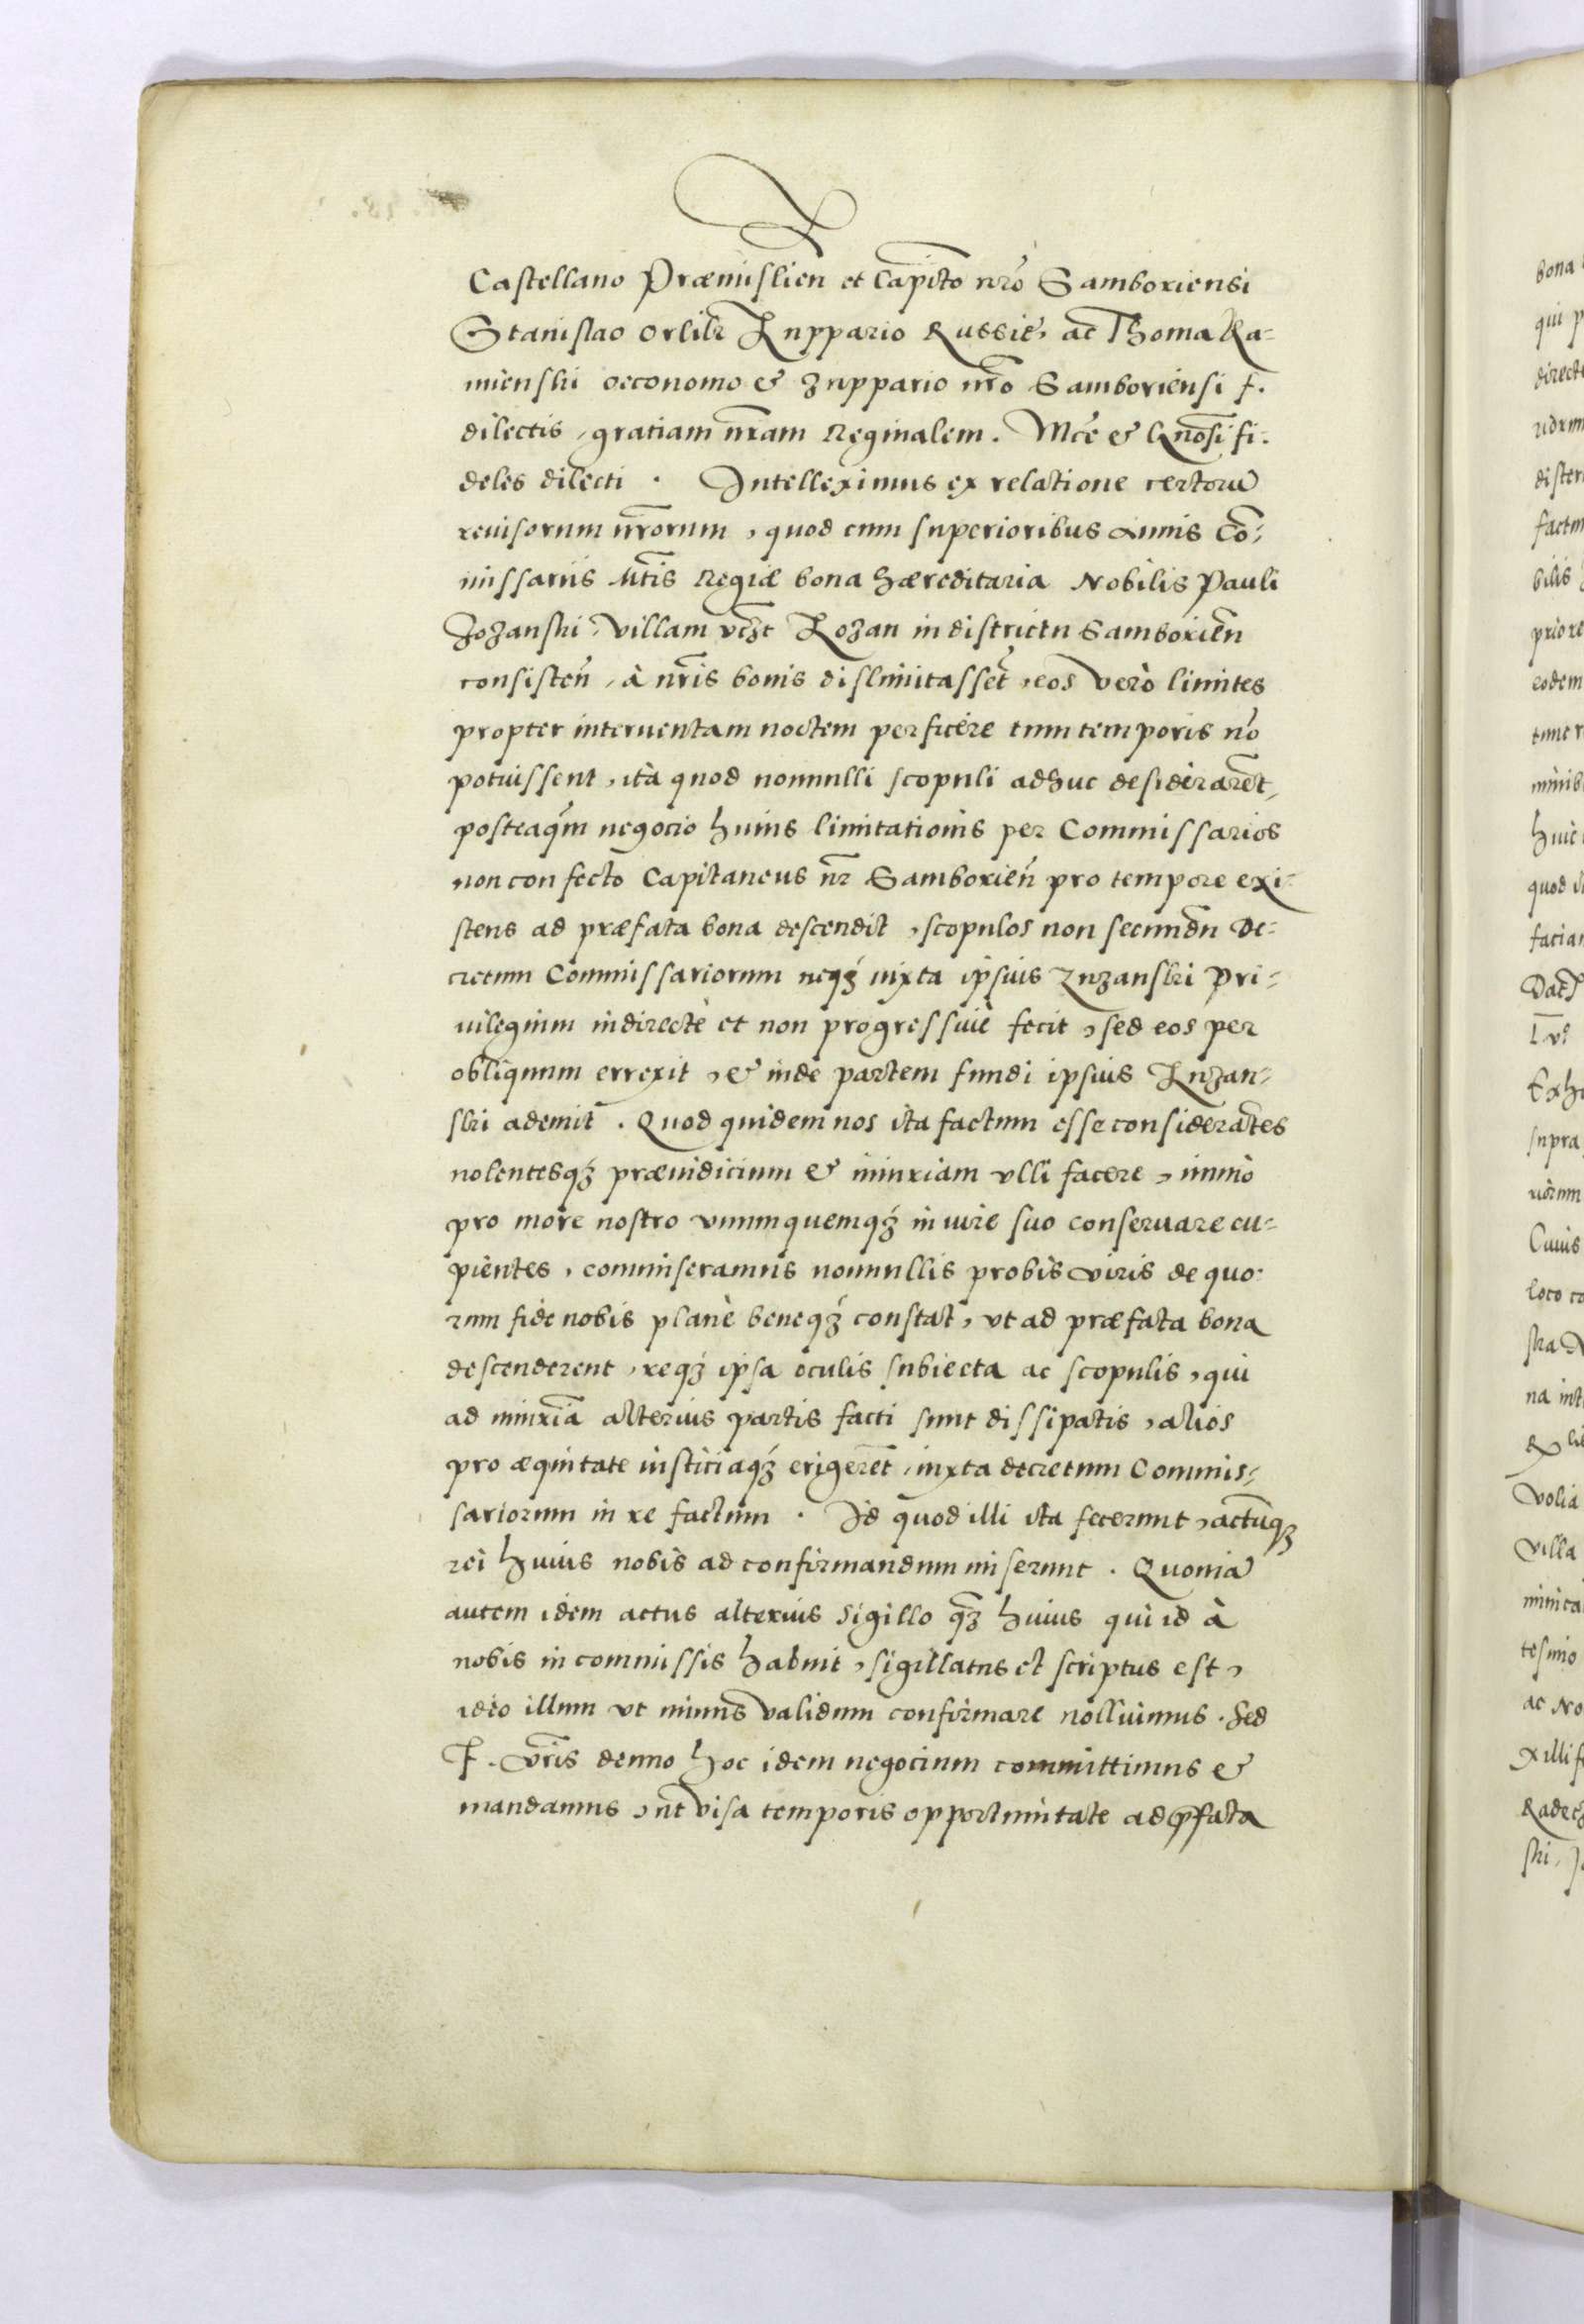 Castellano Præmislien̄ et Capito nr̃o Samboriensi
Stanislao Orlik Zuppario Russie, ac Thoma Ra-
mienski oeconomo & Zuppario nr̃o Samboriensi f.
dilectis, gratiam nr̃am Reginalem. Mce & Gnosi fi-
deles dilecti. Intelleximus ex relatione certorū
reuisorum nr̃orum, quod cum superioribus annis Co-
missariis Mtis Regiæ bona hæreditaria Nobilis Pauli
Zozanski, villam vczt Zozan in districtu Samborien̄
consisten̄, à nr̃is bonis dislimitassēt, eos verò limites
propter interuentam noctem perficere tum temporis nō
potuissent, ità quod nonnulli scopuli adhuc desiderarēt,
posteaq̃m negocio huius limitationis per Commissarios
non confecto Capitaneus nr̃ Samborien̄ pro tempore exi-
stens ad præfata bona descendit, scopulos non secundū De-
cretum Commissariorum neqʒ iuxta ipsius Zuzanski Pri-
uilegium indirectè et non progressiuè fecit, sed eos per
obliquum errexit, & inde partem fundi ipsius Zuzan-
ski ademit. Quod quidem nos ita factum esse considerātes
nolentesqʒ præiudicium & iniuriam vlli facere, immò
pro more nostro vnumquemqʒ in iure suo conseruare cu-
pientes, commiseramus nonnullis probis viris de quo-
rum fide nobis planè beneqʒ constat, vt ad præfata bona
descenderent, reqʒ ipsa oculis subiecta ac scopulis, qui
ad iniuriā alterius partis facti sunt dissipatis, alios
pro æquitate iusticiaqʒ erigerēt, iuxta decretum Commis-
sariorum in re factum. Id quod illi ita fecerunt, actūqʒ
rei huius nobis ad confirmandum miserunt. Quoniā
autem idem actus alterius sigillo q̃ʒ huius qui id à
nobis in commissis habuit, sigillatus et scriptus est,
ideo illum vt minus validum confirmare nolluimus. Sed
F. Vr̃is denuo hoc idem negocium committimus &
mandamus, ut visa temporis opportunitate ad p̃fata